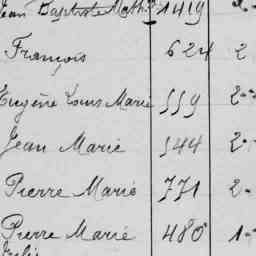 Jean Baptiste Math. 1419 2
François 624 2
Eugène Louis Marie 559 2
Jean Marie 544 2
Pierre Marie 771 2
Pierre Marie 480 1